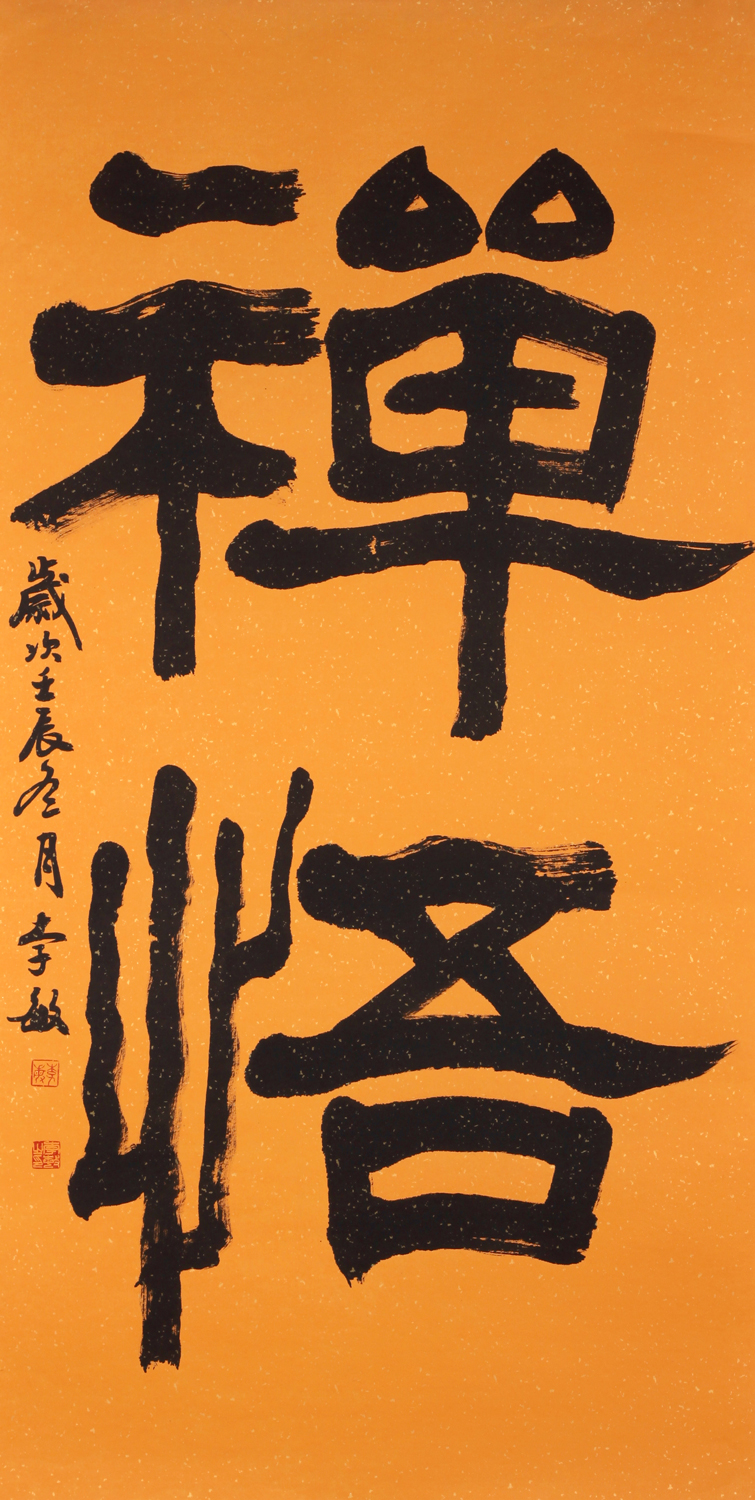 禪悟
歲次壬辰冬月李敏